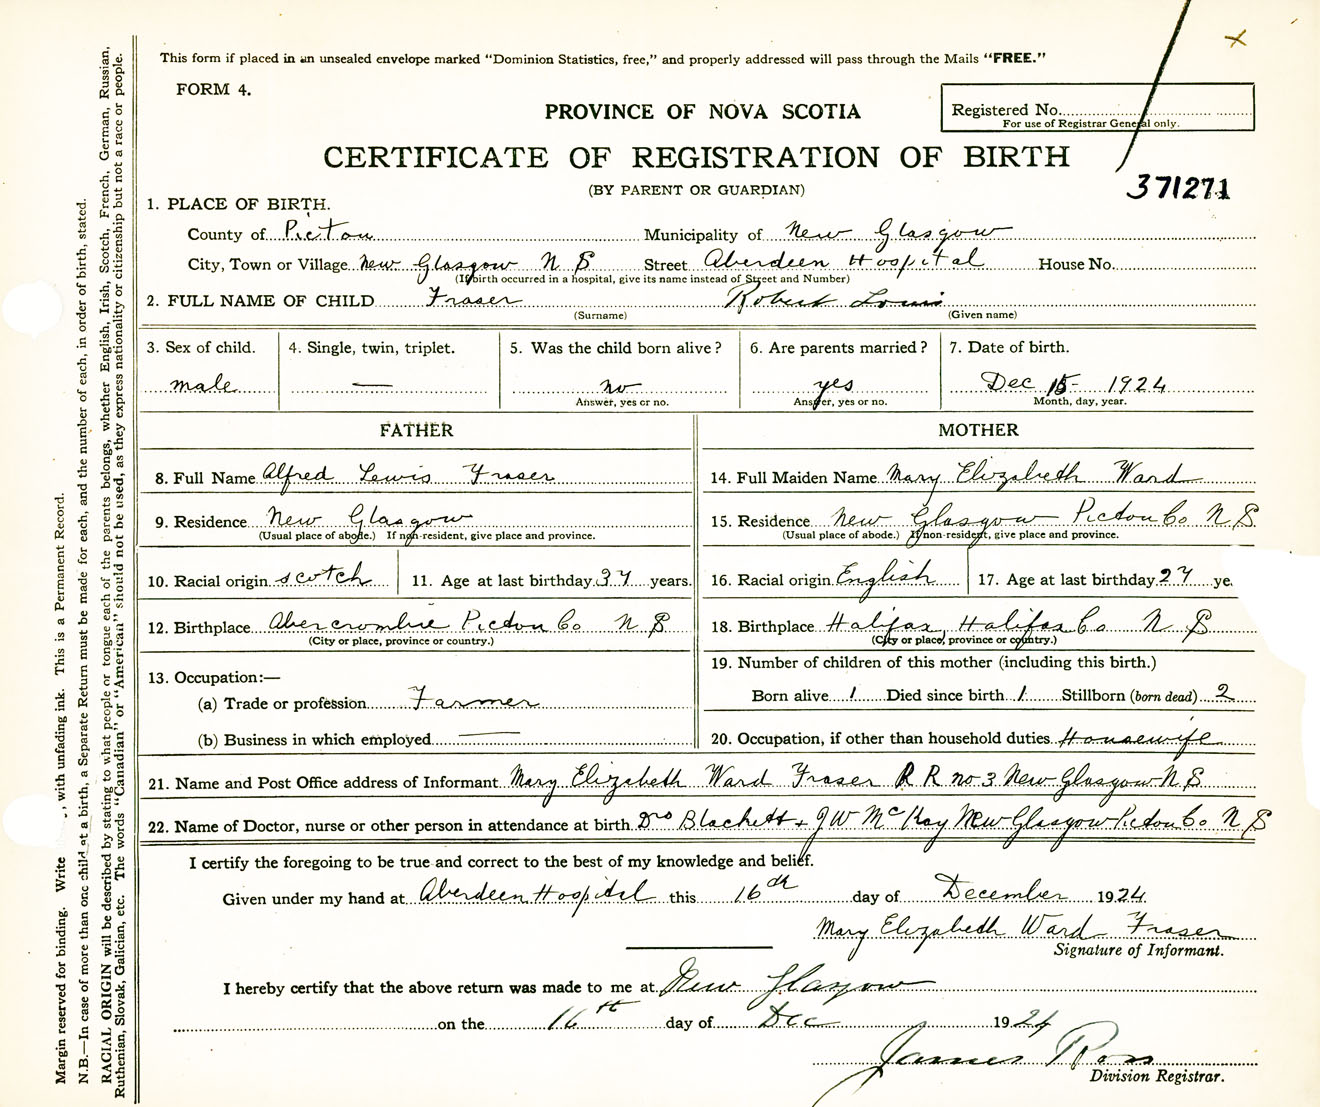 This form if placed in an unsealed envelope marked "Dominion Statistics, free," and properly addressed will pass through the Mails "FREE."
FORM 4.
PROVINCE OF NOVA SCOTIA
Registered No.
For use of Registrar General only.
CERTIFICATE OF REGISTRATION OF BIRTH
371271
(BY PARENT OR GUARDIAN)
1. PLACE OF BIRTH.
County of Pictou Municipality of New Glasgow
City, Town or Village New Glasgow N S Street Aberdeen Hospital House No.
(If birth occurred in a hospital, give its name instead of Street and Number)
2. FULL NAME OF CHILD Fraser Robert Louis
(Surname) (Given name)
3. Sex of child. 4. Single, twin, triplet. 5. Was the child born alive? 6. Are parents married? 7. Date of birth.
male — no yes Dec 15- 1924
Answer, yes or no. Answer, yes or no. Month, day, year.
FATHER MOTHER
8. Full Name Alfred Lewis Fraser 14. Full Maiden Name Mary Elizabeth Ward
9. Residence New Glasgow 15. Residence New Glasgow Pictou Co N S.
(Usual place of abode.) If non-resident, give place and province. (Usual place of abode.) If non-resident, give place and province.
10. Racial origin scotch 11. Age at last birthday 37 years. 16. Racial origin English 17. Age at last birthday 27 ye
12. Birthplace Abercrombie Pictou Co N S 18. Birthplace Halifax, Halifax Co N S
(City or place, province or country.) (City or place, province or country.)
13. Occupation:— 19. Number of children of this mother (including this birth.)
(a) Trade or profession Farmer Born alive 1 Died since birth 1 Stillborn (born dead) 2
(b) Business in which employed — 20. Occupation, if other than household duties Housewife
21. Name and Post Office address of Informant Mary Elizabeth Ward Fraser R R no 3 New Glasgow N S
22. Name of Doctor, nurse or other person in attendance at birth Drs Blackett + J W McKay New Glasgow Pictou Co N S
I certify the foregoing to be true and correct to the best of my knowledge and belief.
Given under my hand at Aberdeen Hospital this 16th day of December 1924
Mary Elizabeth Ward Fraser
Signature of Informant.
I hereby certify that the above return was made to me at New Glasgow
on the 16th day of Dec 1924
James Ross
Division Registrar.
Margin reserved for binding. Write with unfading ink. This is a Permanent Record.
N.B.—In case of more than one child at a birth, a Separate Return must be made for each, and the number of each, in order of birth, stated.
RACIAL ORIGIN will be described by stating to what people or tongue each of the parents belongs, whether English, Irish, Scotch, French, German, Russian,
Ruthenian, Slovak, Galician, etc. The words "Canadian" or "American" should not be used, as they express nationality or citizenship but not a race or people.